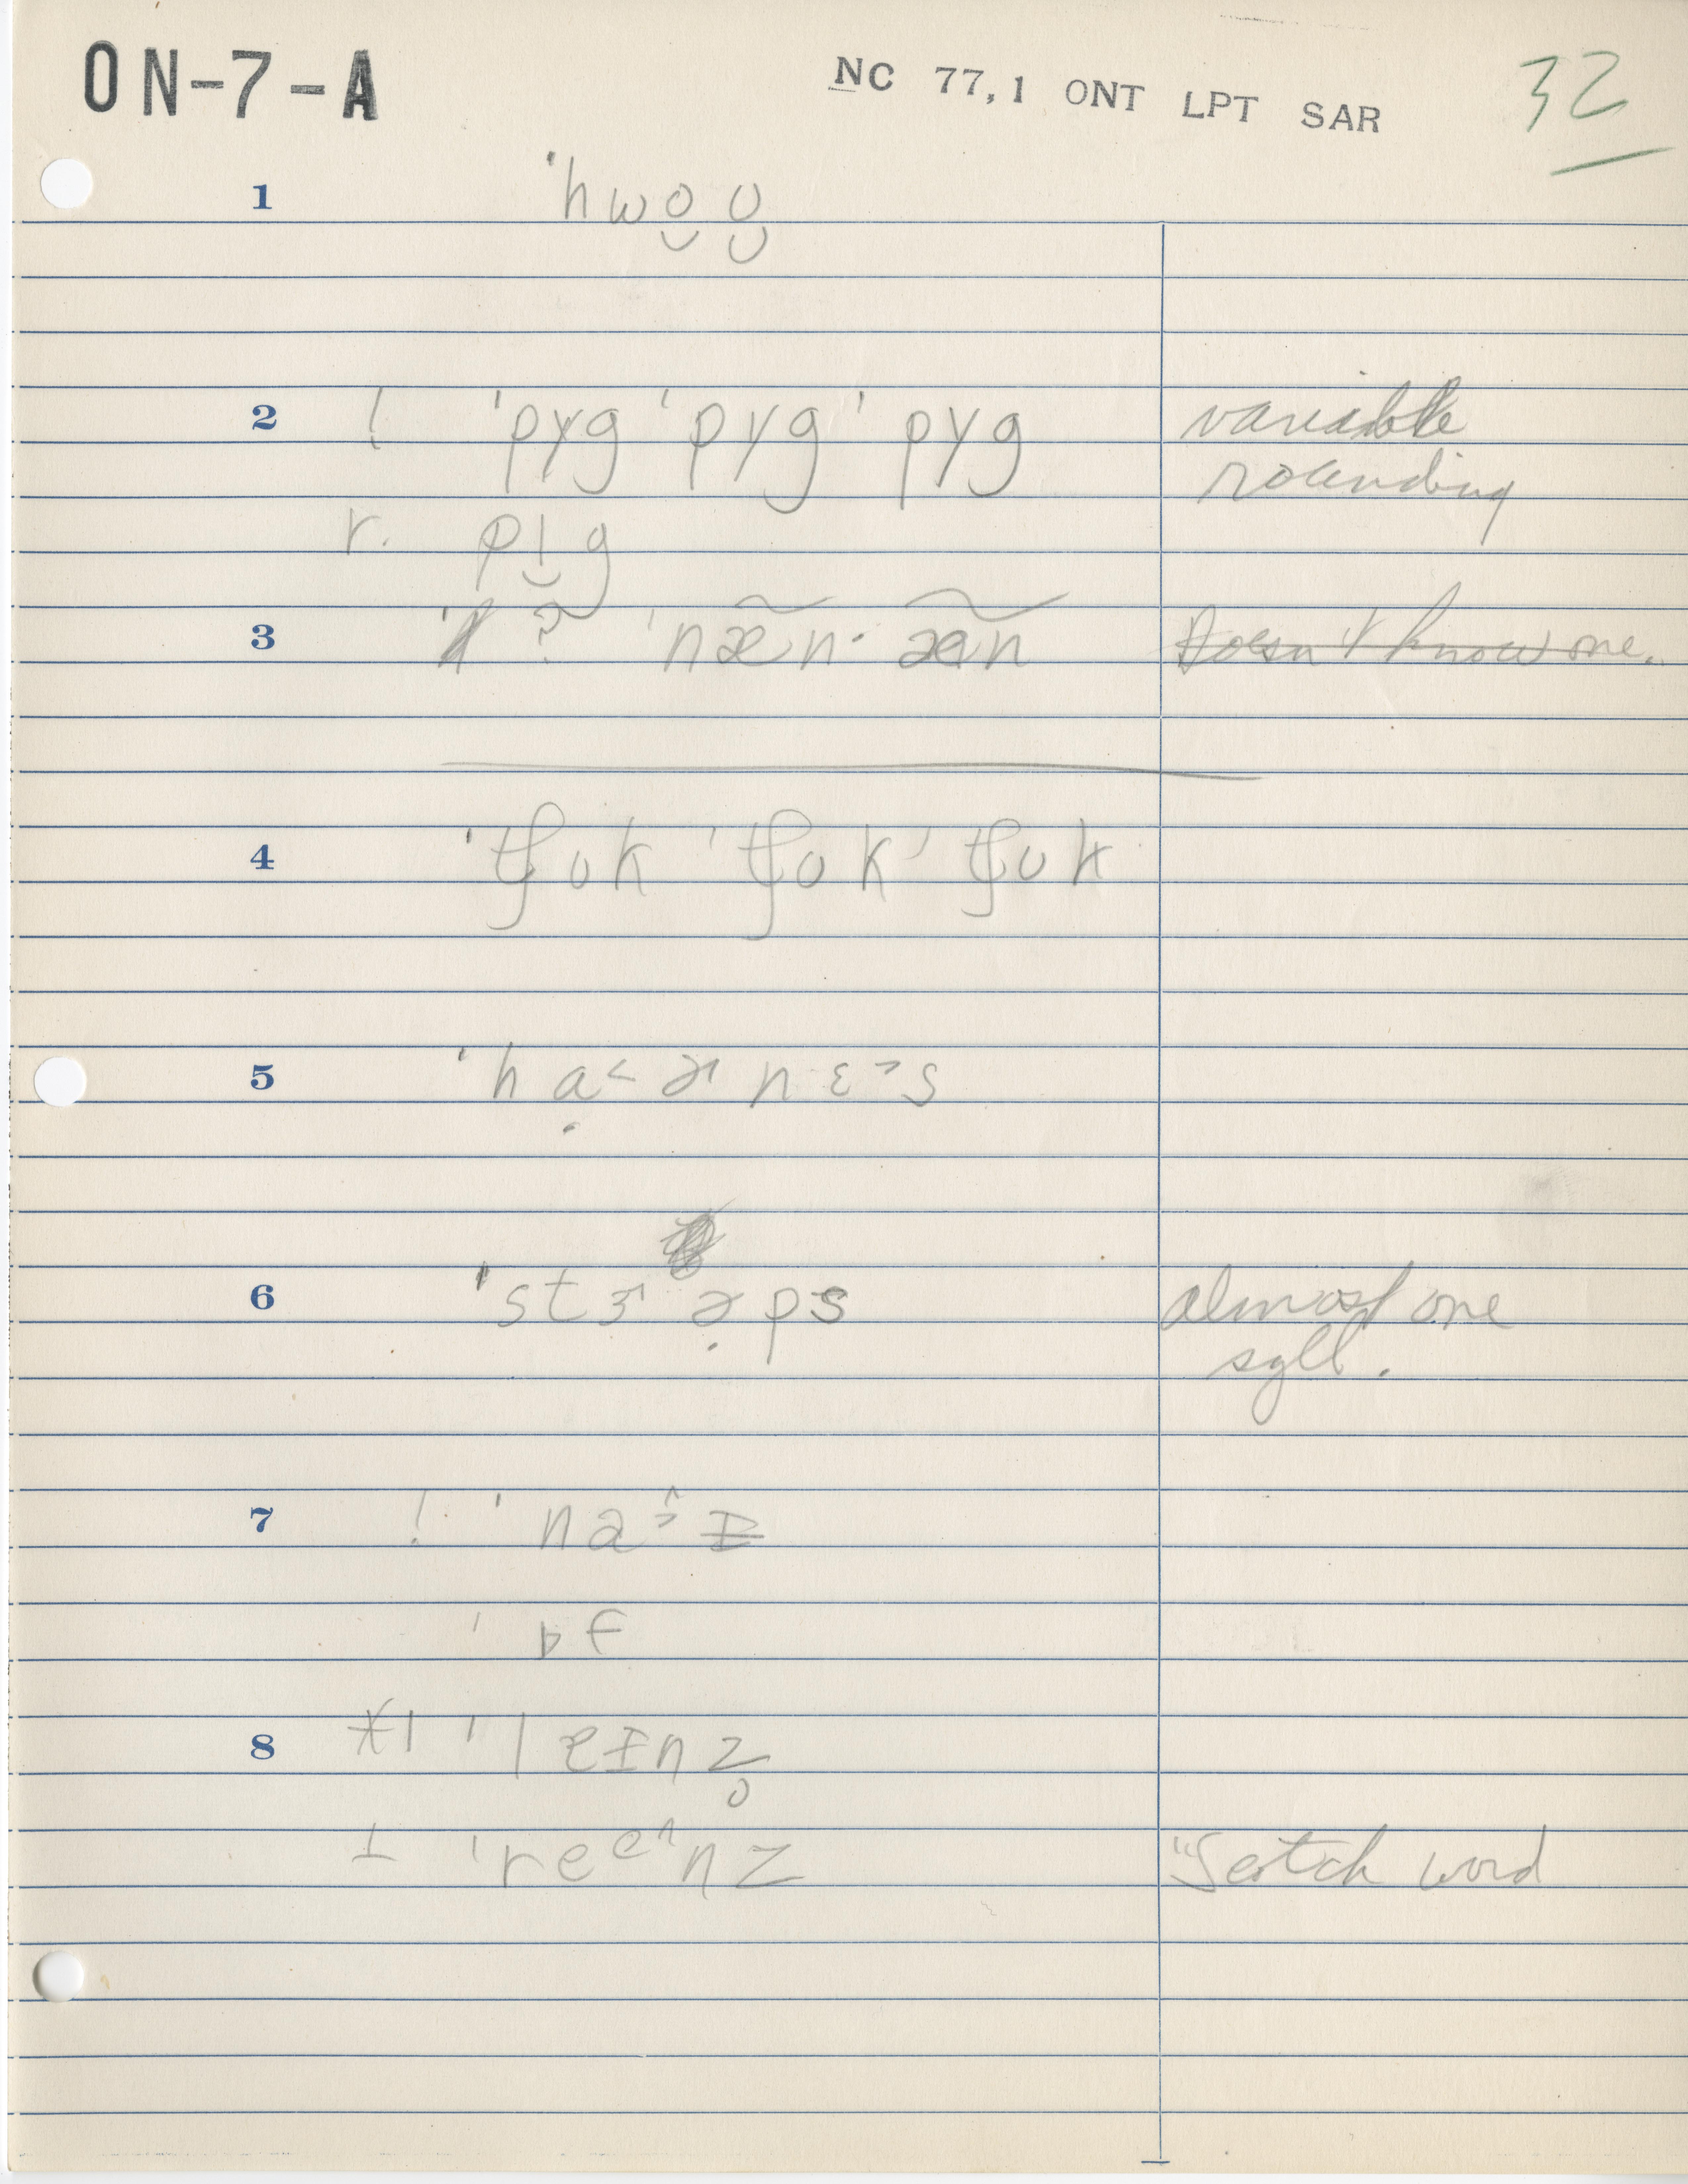 ON-7-A NC 77,1 ONT LPT SAR 32
1 ˈhwo̮ʊ̮
2 ! ˈpʏg ˈpʏg ˈpʏg variable
rounding
r. pɪ̮g
3 ? ˈnæ̃n· æ̃n Doesn't know one.
4 ˈtʃʊk ˈtʃʊk ˈtʃʊk
5 ˈhạ˂ɚnɛ˃s
6 ˈstɝə̣ps almost one
syll.
7 ! ˈna
8 ˈleɪnz̥
⊥ ˈreeˆnz "Scotch word